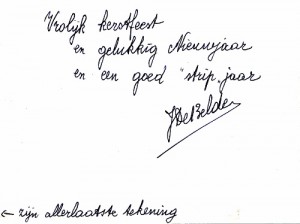 Vrolijk kerstfeest
en gelukkig Nieuwjaar
en een goed "strip" jaar
JDeBelder
← zijn allerlaatste tekening